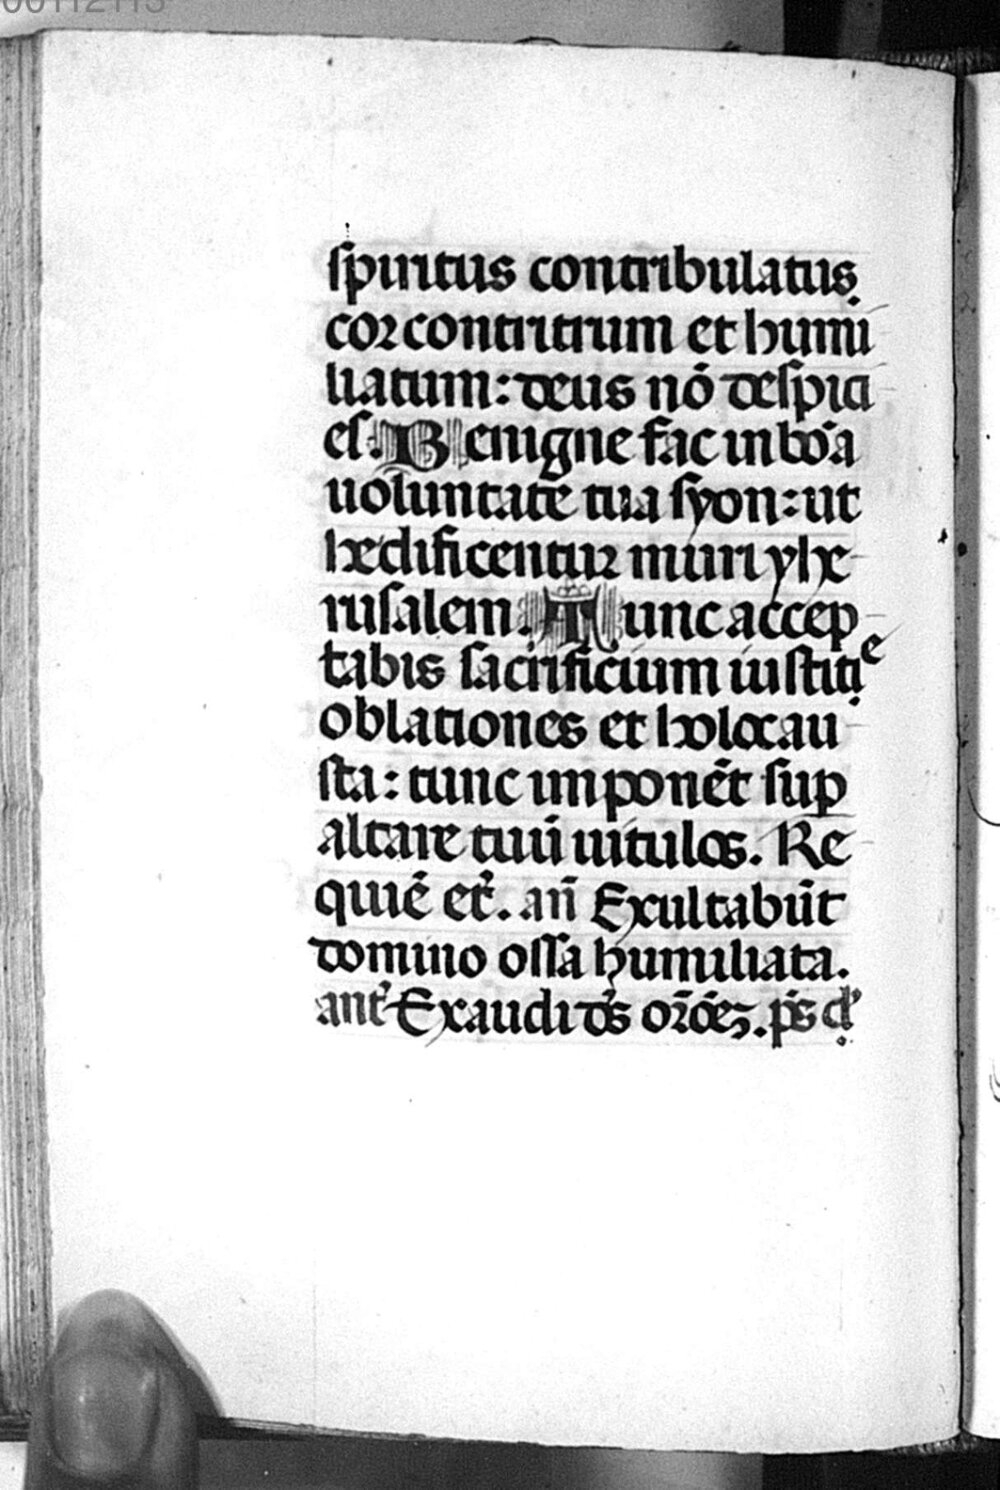 00112113
spiritus contribulatus
cor contritrum et humi
liatum: deus nō despici
es. Benigne fac in bōa
uoluntate tua syon: ut
hedificentur muri yhe
rusalem. Tunc accep
tabis sacrificium iustitie
oblationes et holocau
sta: tunc imponēt sup
altare tuū uitulos. Re
quiē et̄. an̄ Exultabūt
domino ossa humiliata.
ant̄ Exaudi ds̄ or̄oēz.